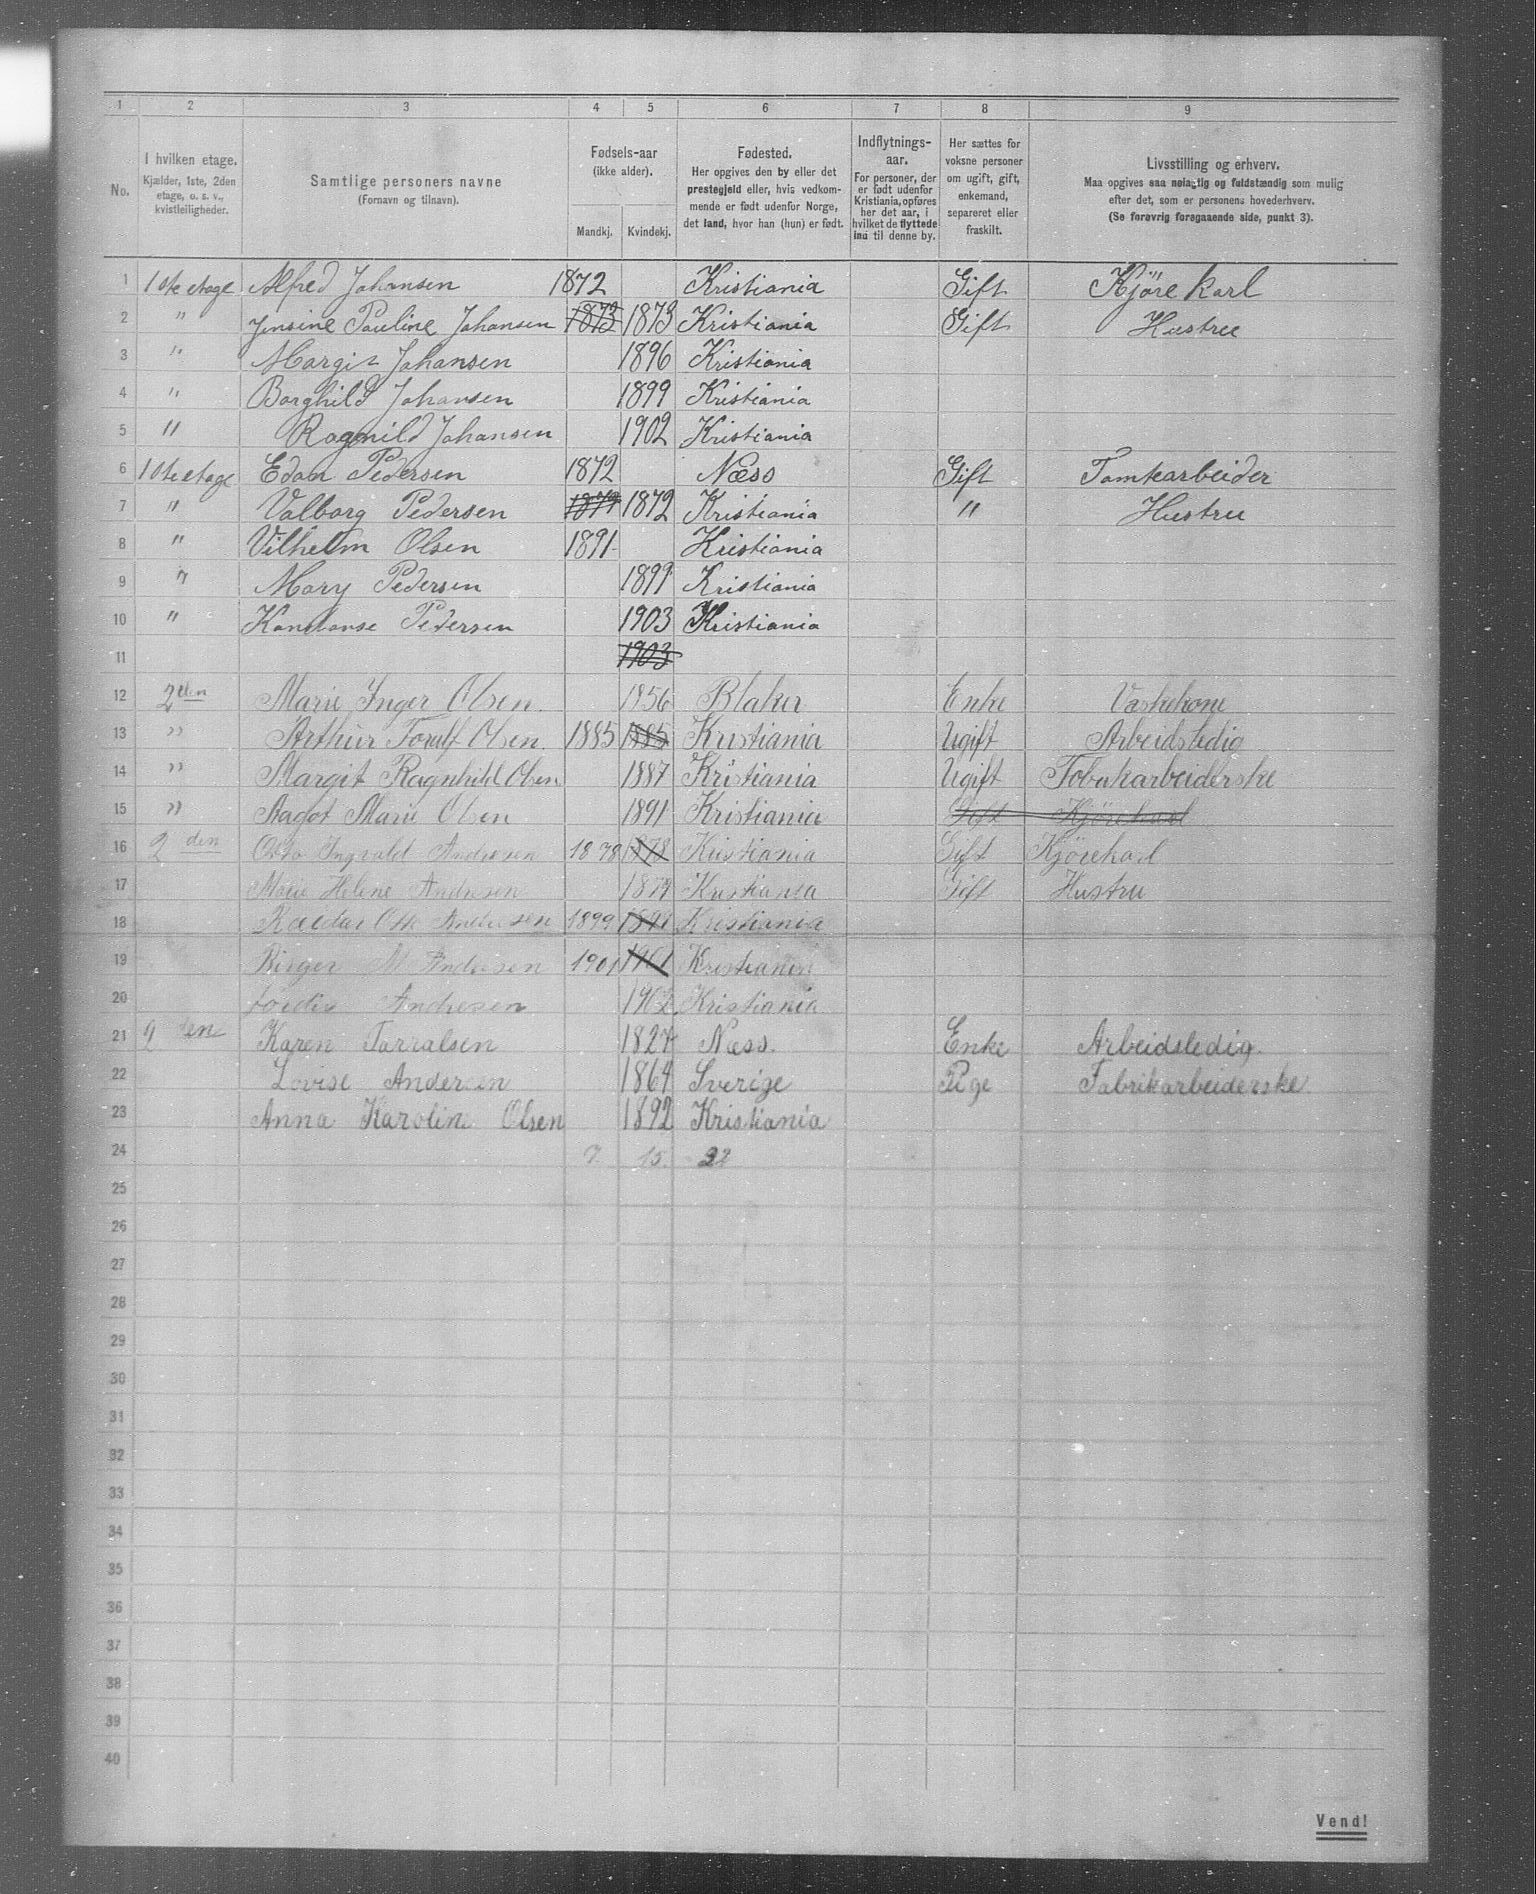 1 2 3 4 5 6 7 8 9
No. I hvilken etage. Kjælder, 1ste, 2den etage, o. s. v., kvistleiligheder. Samtlige personers navne (Fornavn og tilnavn). Fødsels-aar (ikke alder). Mandkj. Kvindekj. Fødested. Her opgives den by eller det prestegjeld eller, hvis vedkommende er født udenfor Norge, det land, hvor han (hun) er født. Indflytningsaar. For personer, der er født udenfor Kristiania, opføres her det aar, i hvilket de flyttede ind til denne by. Her sættes for voksne personer om ugift, gift, enkemand, separeret eller fraskilt. Livsstilling og erhverv. Maa opgives saa nøiagtig og fuldstændig som mulig efter det, som er personens hovederhverv. (Se forøvrig foregaaende side, punkt 3).
1 1ste etage Alfred Johansen 1872 Kristiania Gift Kjøre karl
2 " Jensine Pauline Johansen 1873 1873 Kristiania Gift Hustru
3 " Margit Johansen 1896 Kristiania
4 " Borghild Johansen 1899 Kristiania
5 " Ragnild Johansen 1902 Kristiania
6 1ste etage Edan Pedersen 1872 Næss Gift Tomtearbeider
7 " Valborg Pedersen 1872 1872 Kristiania " Hustru
8 " Vilhelm Olsen 1891 Kristiania
9 " Mary Pedersen 1899 Kristiania
10 " Konstanse Pedersen 1903 Kristiania
11 1903
12 2den Marie Inger Olsen. 1856 Blaker Enke Vaskekone
13 " Arthur Toralf Olsen. 1885 1885 Kristiania Ugift Arbeidsledig
14 " Margit Ragnhild Olsen 1887 Kristiania Ugift Tobakarbeiderske
15 " Aagot Marie Olsen 1891 Kristiania Gift Kjørekarl
16 2 den Otto Ingvald Andresen 1878 1878 Kristiania Gift Kjørekarl
17 Marie Helene Andresen 1879 Kristiania Gift Hustru
18 Reidar Otto Andresen 1899 1899 Kristiania
19 Birger M Andresen 1901 1901 Kristiania
20 Andresen 1902 Kristiania
21 2 den Karen Torralsen 1827 Næss. Enke Arbeidsledig.
22 Lovise Andersen 1864 Sverige Pige Fabrikarbeiderske.
23 Anna Karoline Olsen 1892 Kristiania
24 7 15. 22
25
26
27
28
29
30
31
32
33
34
35
36
37
38
39
40
Vend!